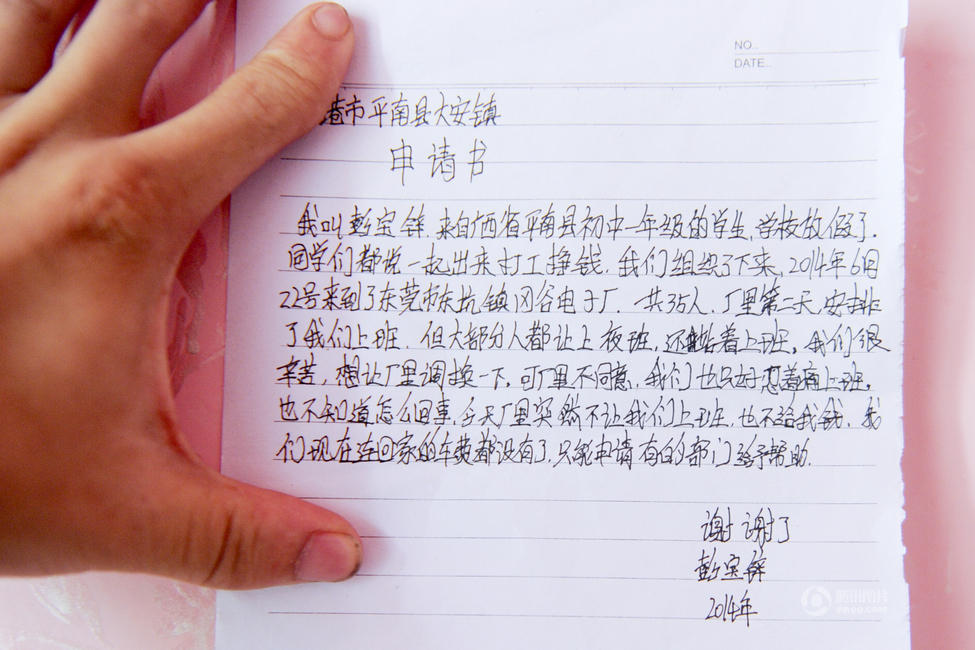 NO.
DATE.
港市平南县大安镇
申请书
我叫彭宝锌.来自广西省平南县初中一年级的学生,学校放假了.
同学们都说一起出来打工挣钱.我们组织了下来,2014年6月
22号来到了东莞市东坑镇冈谷电子厂.一共35人.厂里第二天,安排
了我们上班.但大部分人都让上夜班,还站着上班。我们很
辛苦,想让厂里调换一下。可厂里不同意,我们也只好忍着痛上班,
也不知道怎么回事,今天厂里突然不让我们上班,也不给我钱.我
们现在连回家的车费都没有了.只能申请有的部门给予帮助.
谢谢了
彭宝锌
2014年
腾讯图片